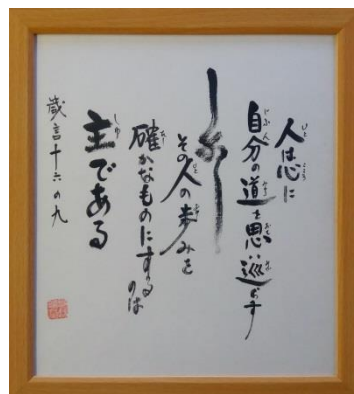 人は心に
自分の道を思い巡らす
しかし
その人の歩みを
確かなものにするのは
主である
箴言十六の九